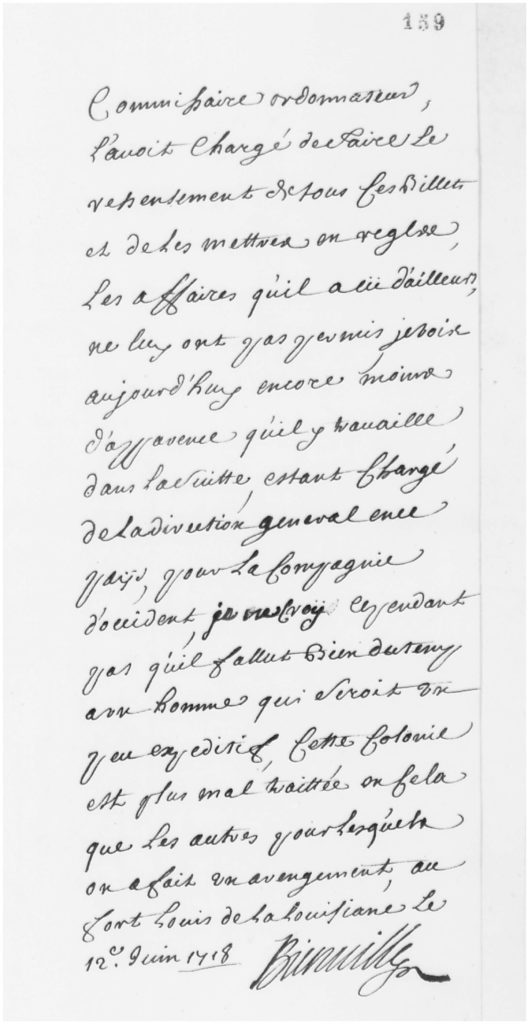 159
Commissaire ordonnateur,
L'auoit Chargé de faire Le
resensement de tous Ces Billets
et de Les mettres en regles,
Les affaires qu'il a eü d'ailleurs,
ne luy ont pas permis, je vois
aujourd'huy encore moins
d'apparence qu'il y trauaille
dans la Suitte, estant Chargé
de la direction general en ce
païs, pour La Compagnie
d'occident, je ne Croy Cependant
pas qu'il fallut Bien du temps
a un homme qui seroit un
peu expeditif, Cette Colonie
est plus mal traittée en Cela
que Les autres pour Lesquels
on a fait un arengement, au
fort Louis de La Louisiane, Le
12e. Juin 1718 Bienville